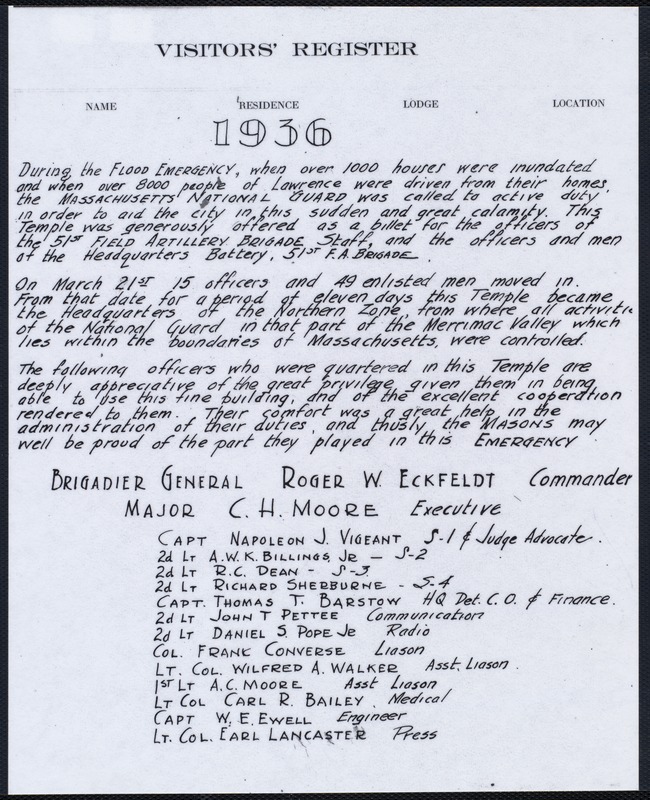 VISITORS' REGISTER
NAME RESIDENCE LODGE LOCATION
1936
During the FLOOD EMERGENCY, when over 1000 houses were inundated
and when over 8000 people of Lawrence were driven from their homes,
the MASSACHUSETTS NATIONAL GUARD was called to active duty
in order to aid the city in this sudden and great calamity. This
Temple was generously offered as a billet for the officers of
the 51ST FIELD ARTILLERY BRIGADE Staff, and the officers and men
of the Headquarters Battery, 51ST F.A. BRIGADE.
On March 21ST 15 officers and 49 enlisted men moved in.
From that date for a period of eleven days this Temple became
the Headquarters of the Northern Zone, from where all activitie
of the National Guard in that part of the Merrimac Valley which
lies within the boundaries of Massachusetts, were controlled.
The following officers who were quartered in this Temple are
deeply appreciative of the great privilege given them in being
able to use this fine building, and of the excellent cooperation
rendered to them. Their comfort was a great help in the
administration of their duties, and thusly the MASONS may
well be proud of the part they played in this EMERGENCY.
BRIGADIER GENERAL ROGER W. ECKFELDT Commander
MAJOR C. H. MOORE Executive
CAPT NAPOLEON J. VIGEANT S-1 & Judge Advocate.
2d LT A.W.K. BILLINGS, JR - S-2
2d LT R.C. DEAN - S-3
2d LT RICHARD SHERBURNE - S-4
CAPT. THOMAS T. BARSTOW HQ Det. C.O. & Finance.
2d LT JOHN T PETTEE Communication
2d LT DANIEL S. POPE Je Radio
COL. FRANK CONVERSE Liason
LT. COL. WILFRED A. WALKER Asst. Liason.
1ST LT A.C. MOORE Asst Liason
LT COL CARL R. BAILEY. Medical
CAPT W. E. EWELL Engineer
LT. COL. EARL LANCASTER Press